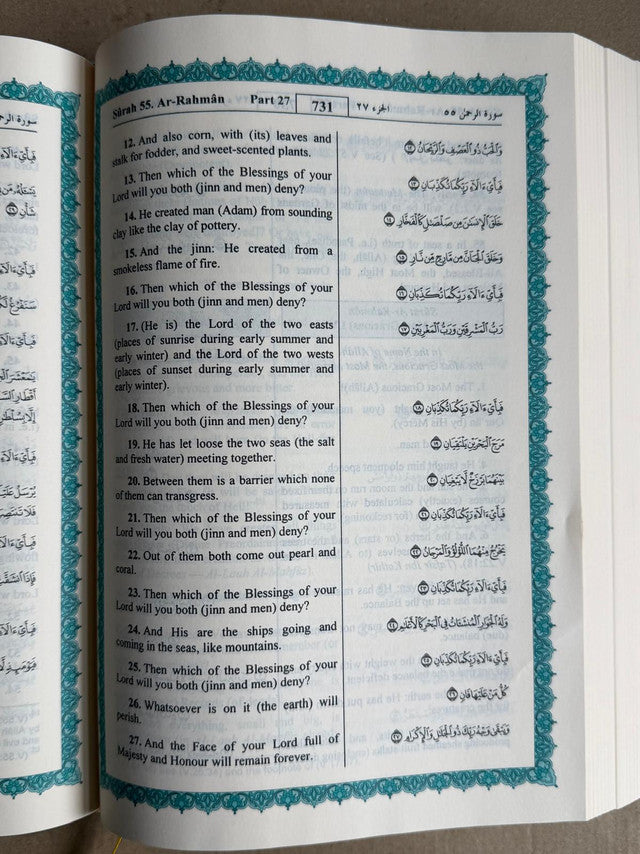 Sûrah 55. Ar-Rahmân Part 27 731 الجزء ٢٧ سورة الرحمن ٥٥
12. And also corn, with (its) leaves and
stalk for fodder, and sweet-scented plants.
13. Then which of the Blessings of your
Lord will you both (jinn and men) deny?
14. He created man (Adam) from sounding
clay like the clay of pottery.
15. And the jinn: He created from a
smokeless flame of fire.
16. Then which of the Blessings of your
Lord will you both (jinn and men) deny?
17. (He is) the Lord of the two easts
(places of sunrise during early summer and
early winter) and the Lord of the two wests
(places of sunset during early summer and
early winter).
18. Then which of the Blessings of your
Lord will you both (jinn and men) deny?
19. He has let loose the two seas (the salt
and fresh water) meeting together.
20. Between them is a barrier which none
of them can transgress.
21. Then which of the Blessings of your
Lord will you both (jinn and men) deny?
22. Out of them both come out pearl and
coral.
23. Then which of the Blessings of your
Lord will you both (jinn and men) deny?
24. And His are the ships going and
coming in the seas, like mountains.
25. Then which of the Blessings of your
Lord will you both (jinn and men) deny?
26. Whatsoever is on it (the earth) will
perish.
27. And the Face of your Lord full of
Majesty and Honour will remain forever.
وَٱلْحَبُّ ذُو ٱلْعَصْفِ وَٱلرَّيْحَانُ ١٢
فَبِأَيِّ ءَالَآءِ رَبِّكُمَا تُكَذِّبَانِ ١٣
خَلَقَ ٱلْإِنسَٰنَ مِن صَلْصَٰلٍ كَٱلْفَخَّارِ ١٤
وَخَلَقَ ٱلْجَآنَّ مِن مَّارِجٍ مِّن نَّارٍ ١٥
فَبِأَيِّ ءَالَآءِ رَبِّكُمَا تُكَذِّبَانِ ١٦
رَبُّ ٱلْمَشْرِقَيْنِ وَرَبُّ ٱلْمَغْرِبَيْنِ ١٧
فَبِأَيِّ ءَالَآءِ رَبِّكُمَا تُكَذِّبَانِ ١٨
مَرَجَ ٱلْبَحْرَيْنِ يَلْتَقِيَانِ ١٩
بَيْنَهُمَا بَرْزَخٌ لَّا يَبْغِيَانِ ٢٠
فَبِأَيِّ ءَالَآءِ رَبِّكُمَا تُكَذِّبَانِ ٢١
يَخْرُجُ مِنْهُمَا ٱللُّؤْلُؤُ وَٱلْمَرْجَانُ ٢٢
فَبِأَيِّ ءَالَآءِ رَبِّكُمَا تُكَذِّبَانِ ٢٣
وَلَهُ ٱلْجَوَارِ ٱلْمُنشَـَٔاتُ فِي ٱلْبَحْرِ كَٱلْأَعْلَٰمِ ٢٤
فَبِأَيِّ ءَالَآءِ رَبِّكُمَا تُكَذِّبَانِ ٢٥
كُلُّ مَنْ عَلَيْهَا فَانٍ ٢٦
وَيَبْقَىٰ وَجْهُ رَبِّكَ ذُو ٱلْجَلَٰلِ وَٱلْإِكْرَامِ ٢٧